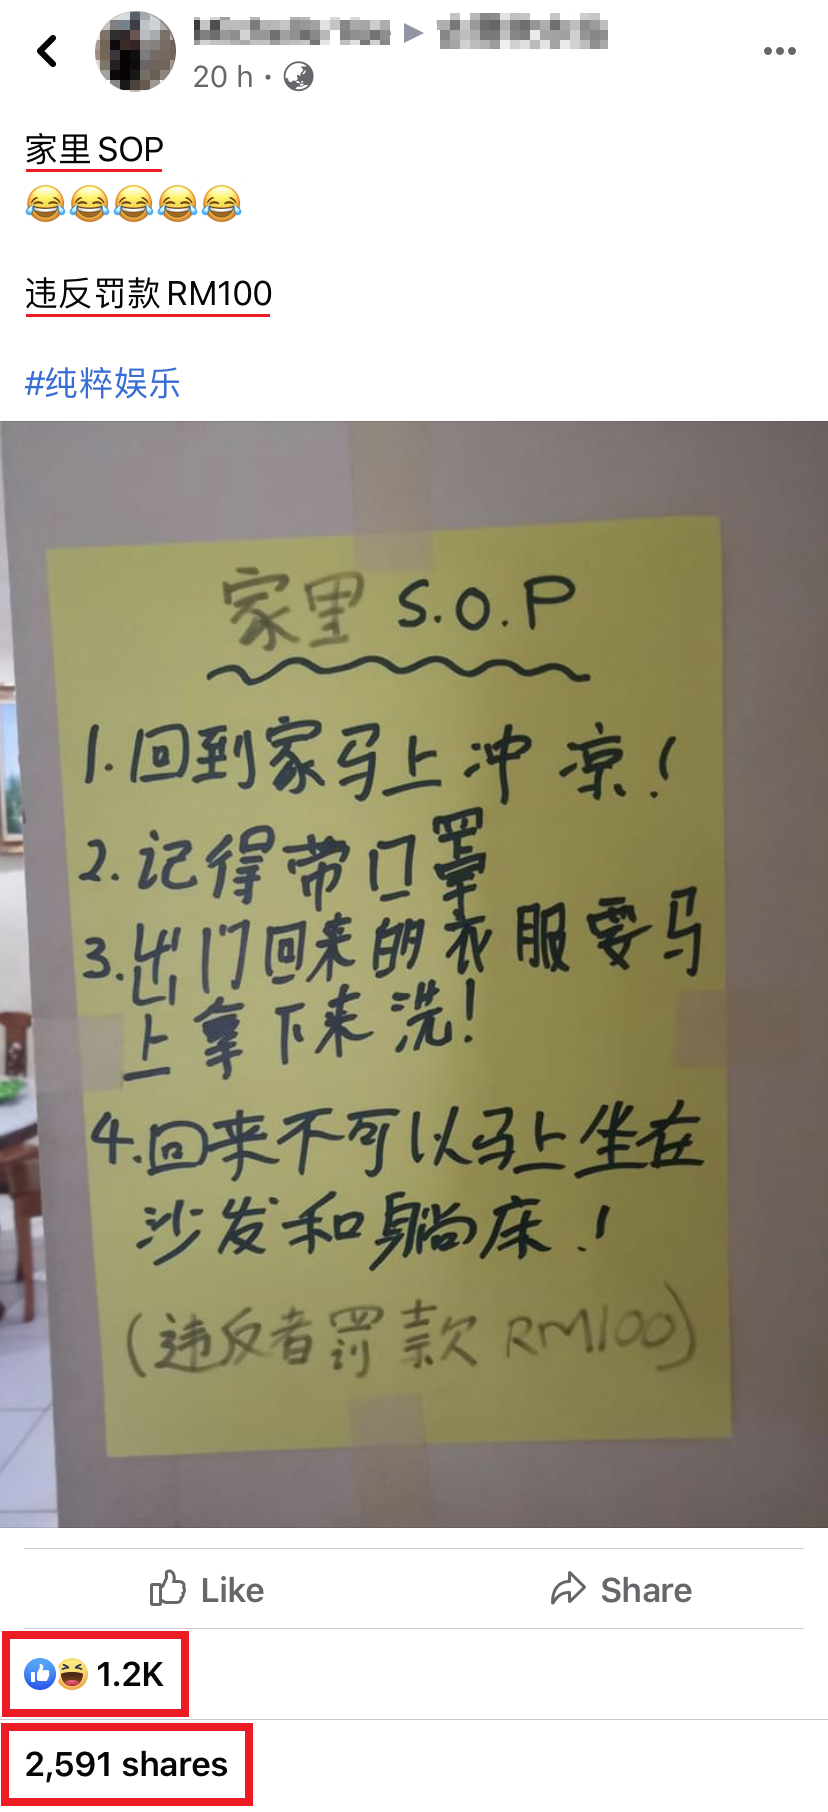 20 h
家里SOP
😂😂😂😂😂
违反罚款RM100
#纯粹娱乐
家里 S.O.P
1.回到家马上冲凉!
2.记得带口罩
3.出门回来的衣服要马
上拿下来洗!
4.回来不可以马上坐在
沙发和躺床!
(违反者罚款 RM100)
Like
Share
1.2K
2,591 shares